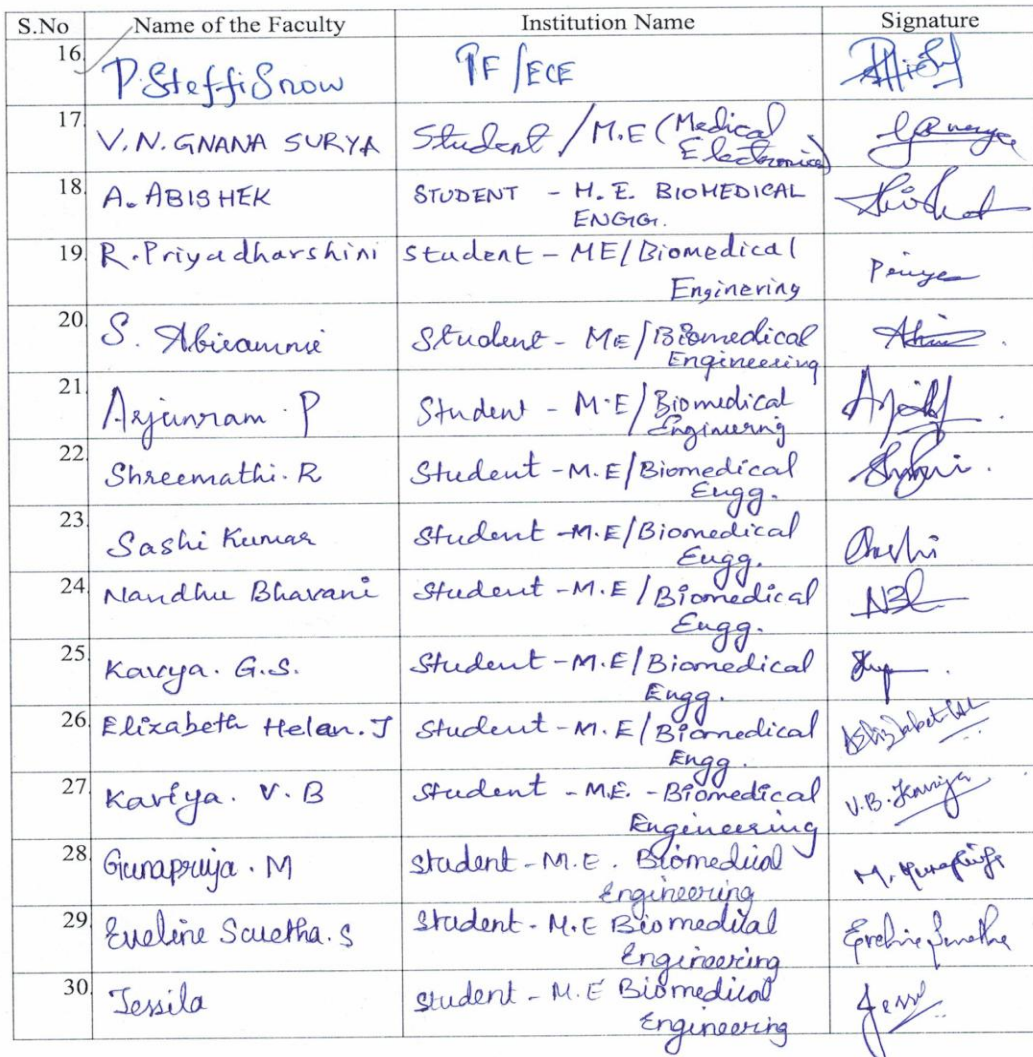 S.No Name of the Faculty Institution Name Signature
16. P. Steffi Snow PF/ECE
17. V.N. GNANA SURYA Student / M.E (Medical
Electronics)
18. A. ABISHEK STUDENT - M.E. BIOMEDICAL
ENGG.
19. R. Priyadharshini Student - ME/Biomedical Priya
Enginering
20. S. Abiramie Student - ME/Biomedical
Engineering
21. Arjunram. P Student - M.E/Biomedical
Engineering
22. Shreemathi. R Student - M.E/Biomedical
Engg.
23. Sashi Kumar Student - M.E/Biomedical
Engg.
24. Nandhu Bhavani Student - M.E/Biomedical
Engg.
25. Kavya. G.S. Student - M.E/Biomedical
Engg.
26. Elizabeth Helan. J Student - M.E/Biomedical
Engg.
27. Kaviya. V. B Student - M.E. - Biomedical V.B. Kaviya
Engineering
28. Gunapriya. M Student - M.E. Biomedical
Engineering
29. Eveline Swetha. S Student - M.E Biomedical
Engineering
30. Jessila Student - M.E Biomedical
Engineering